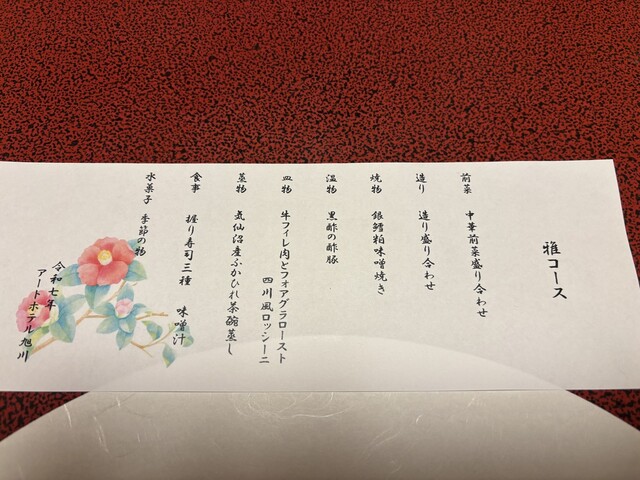 雅コース
前菜 中華前菜盛り合わせ
造り 造り盛り合わせ
焼物 銀鱈粕味噌焼き
温物 黒酢の酢豚
皿物 牛フィレ肉とフォアグラロースト
四川風ロッシーニ
蒸物 気仙沼産ふかひれ茶碗蒸し
食事 握り寿司三種 味噌汁
水菓子 季節の物
令和七年
アートホテル旭川